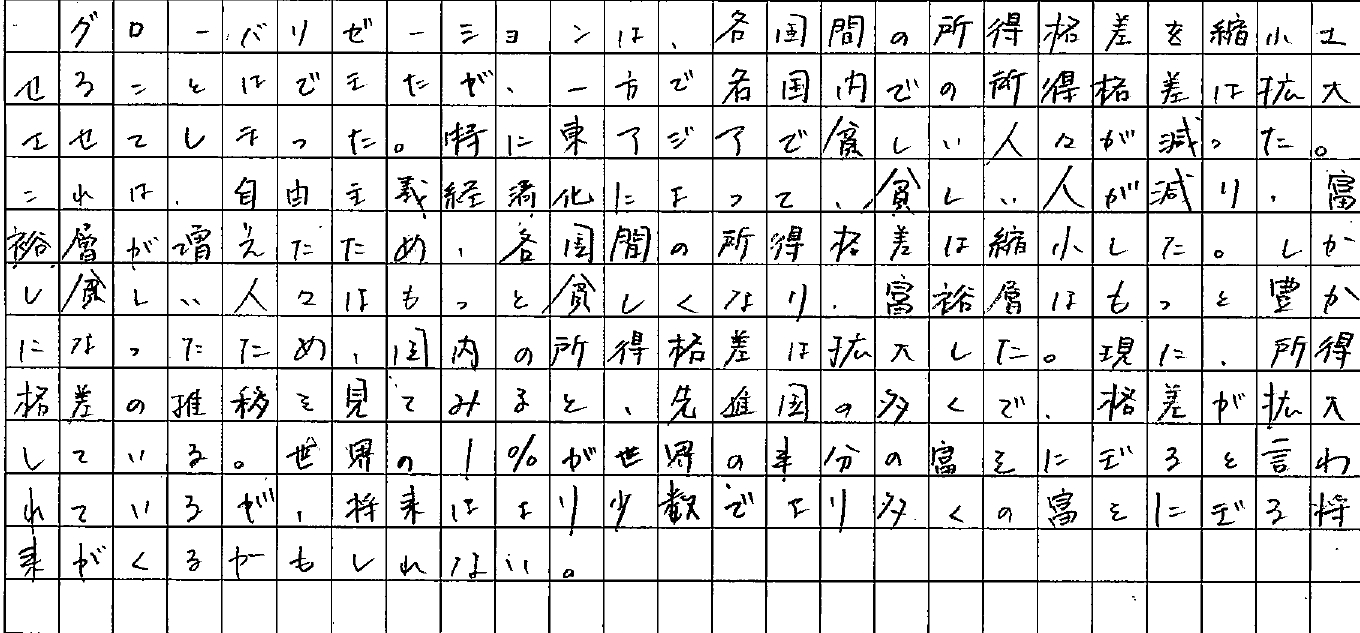 グローバリゼーションは、各国間の所得格差を縮小さ
せることはできたが、一方で各国内での所得格差は拡大
させてしまった。特に東アジアで貧しい人々が減った。
これは、自由主義経済化によって、貧しい人が減り、富
裕層が増えたため、各国間の所得格差は縮小した。しか
し貧しい人々はもっと貧しくなり、富裕層はもっと豊か
になったため、国内の所得格差は拡大した。現に、所得
格差の推移を見てみると、先進国の多くで、格差が拡大
している。世界の1%が世界の半分の富をにぎると言わ
れているが、将来はより少数でより多くの富をにぎる将
来がくるかもしれない。